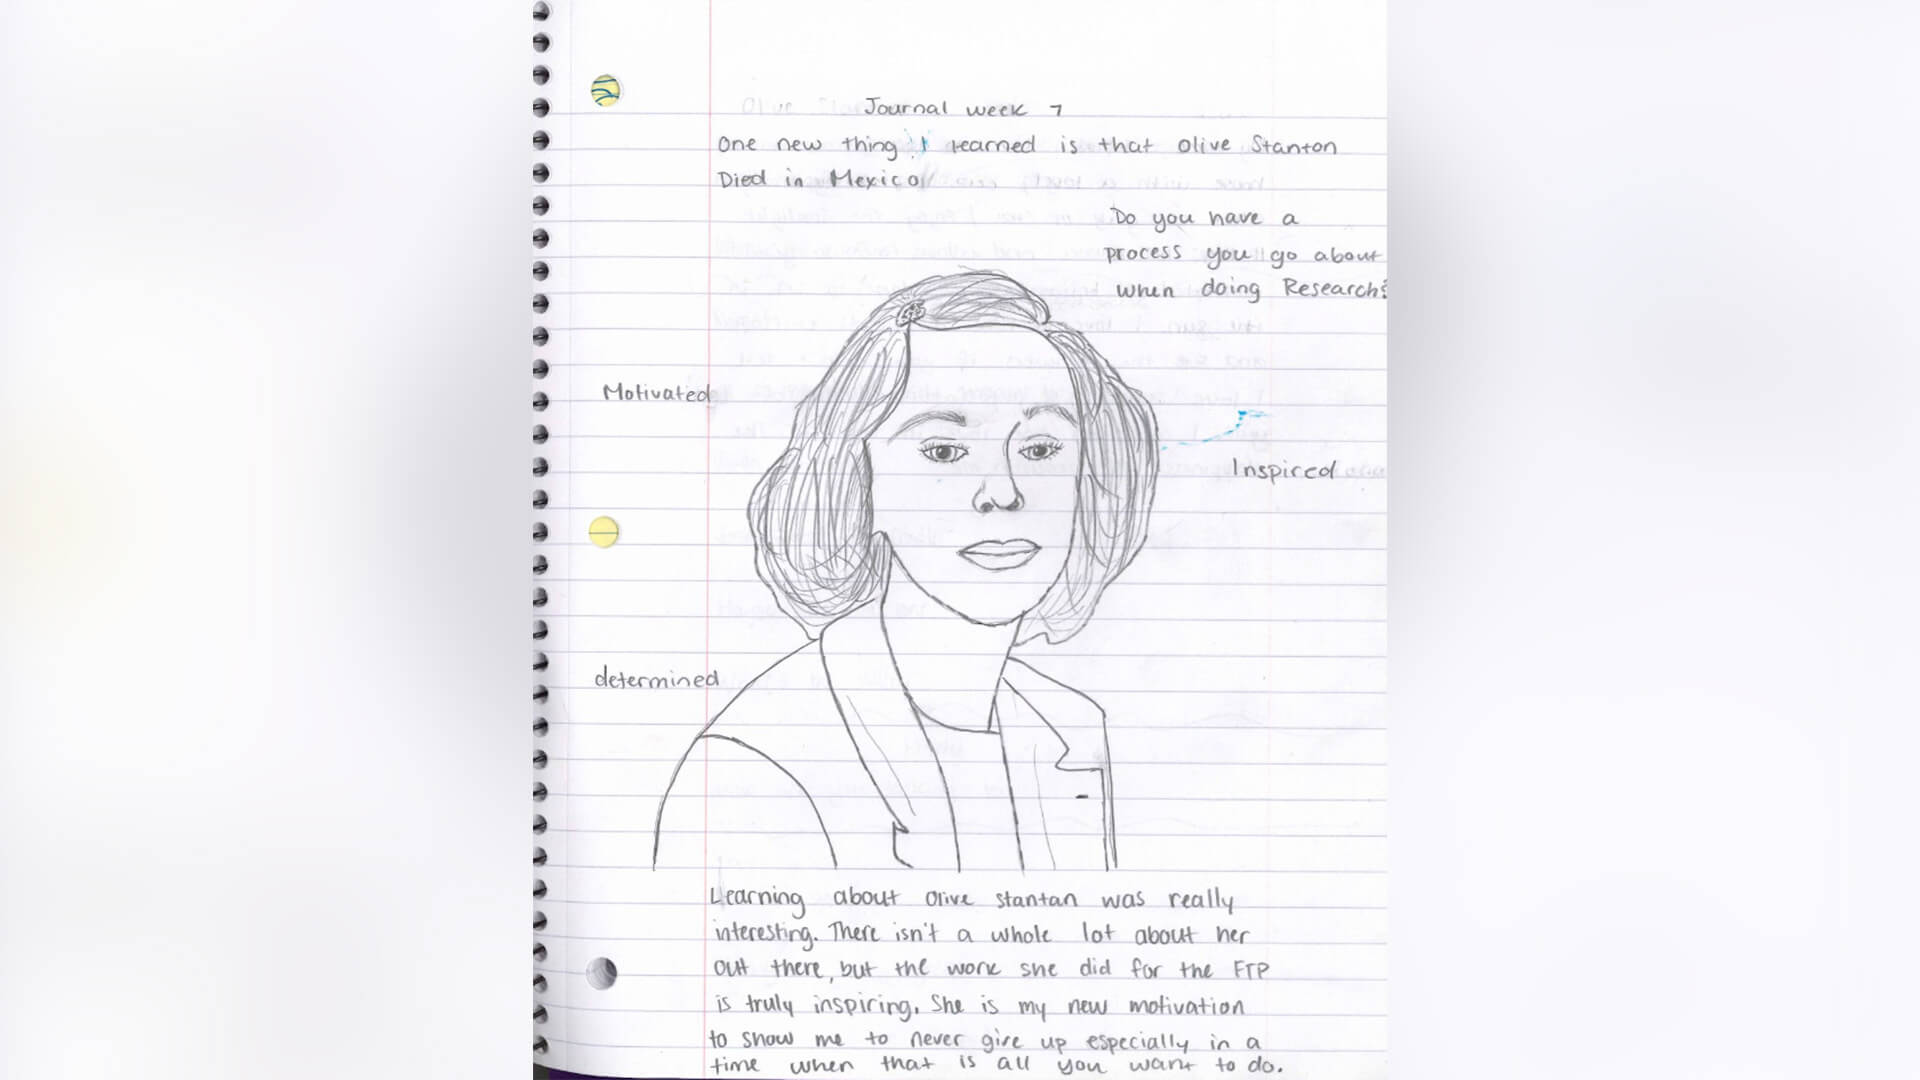 Journal week 7
One new thing I learned is that Olive Stanton
Died in Mexico
Do you have a
process you go about
when doing Research?
Motivated
Inspired
determined
Learning about Olive Stantan was really
interesting. There isn't a whole lot about her
out there, but the work she did for the FTP
is truly inspiring. She is my new motivation
to show me to never give up especially in a
time when that is all you want to do.